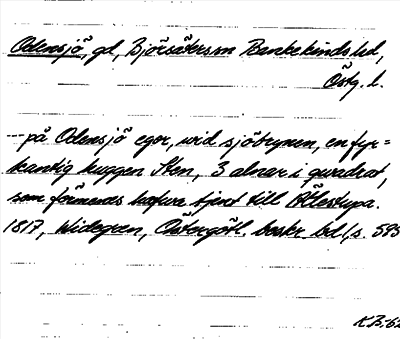 Odensjö, gd, Björsäters sn Bankekinds hd,
Östg. l.
--- på Odensjö egor, wid sjöbrynen, en fyr=
kantig huggen Sten, 3 alnar i quadrat,
som förmenas hafwa tjent till Ättestupa.
1817, Widegren, Östergötl. beskr. bd 1, s. 595
K.B.-62